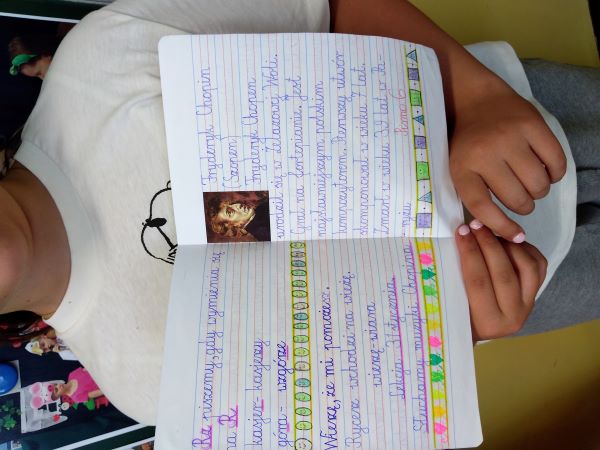 Rz piszemy, gdy wymienia się
na R.
kasjer - kasjerzy
góra - wzgórze
Wierzę, że mi pomożesz.
Rycerz wchodzi na wieżę.
wierzę - wiara
Lekcja
Słuchamy muzyki Chopina
Fryderyk Chopin
(Szopen)
Fryderyk
urodził się w Żelazowej Woli.
Grał na fortepianie. Jest
najsławniejszym polskim
kompozytorem. Pierwszy utwór
skomponował w wieku 7 lat.
Zmarł w wieku 39 lat w Pa-
ryżu. Pismo: 6